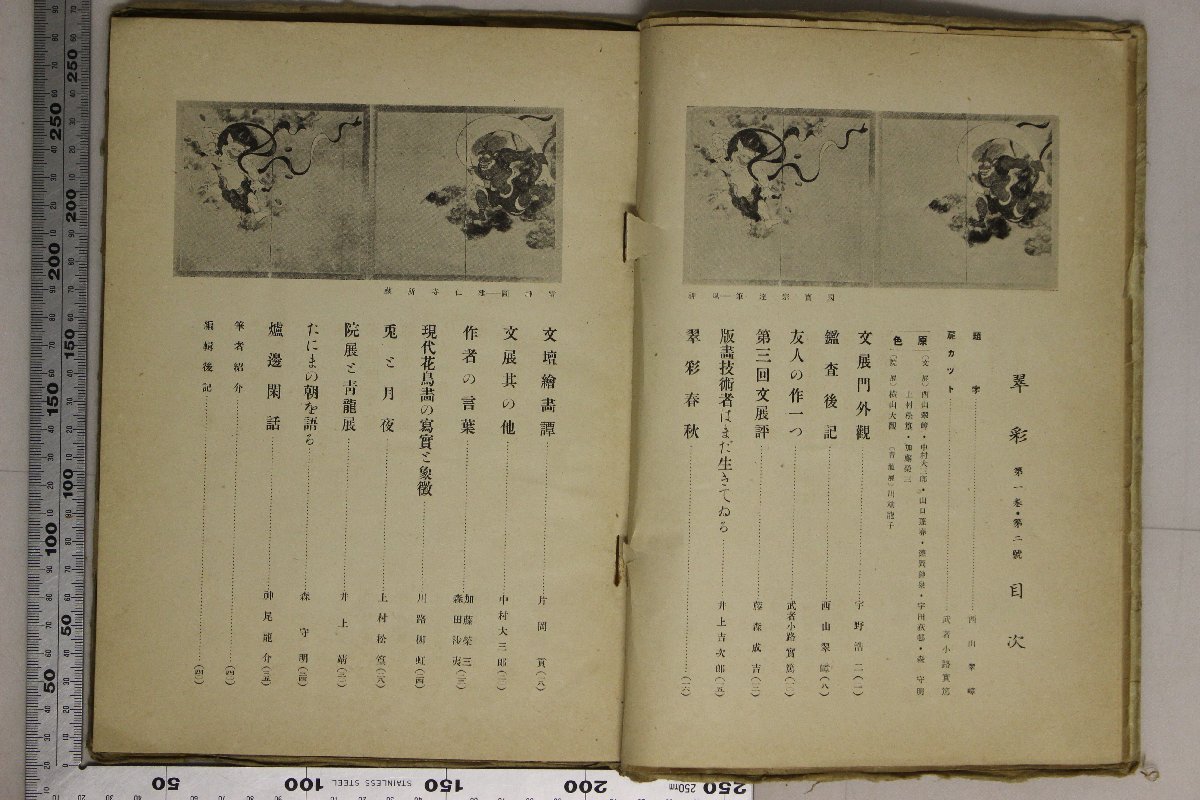 翠彩 第一巻・第二號 目次
題字 西山翠嶂
扉カット 武者小路實篤
原色
(文展)西山翠嶂・中村大三郎・山口蓬春・森守明
上村松篁・加藤榮三
(院展)横山大觀 (青龍展)川端龍子
文展門外觀 宇野浩二
鑑査後記 西山翠嶂(八)
友人の作一つ 武者小路實篤
第三回文展評 藤森成吉
版畵技術者はまだ生きてゐる 井上吉次郎
翠彩春秋
國寳宗達筆―風神
雷神圖―建仁寺所藏
文壇繪畵譚 片岡
文展其の他 中村大三郎
作者の言葉 加藤榮三 森田沙夷
現代花鳥畵の寫實と象徴 川路柳虹
兎と月夜 上村松篁
院展と靑龍展 井上靖
たにまの朝を語る 森守明
爐邊閑話 神尾龍介
筆者紹介
編輯後記
50
100
150
200
250
STAINLESS STEEL
50
100
150
200
250